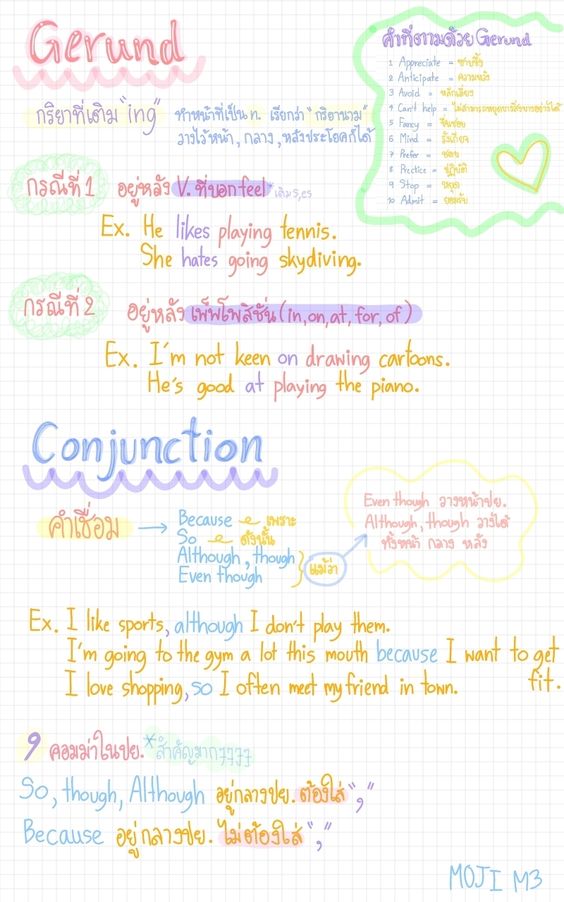 Gerund
กริยาที่เติม "ing" ทำหน้าที่เป็น n. เรียกว่า "กริยานาม"
วางไว้หน้า, กลาง, หลังประโยคก็ได้
คำที่ตามด้วย Gerund
1 Appreciate = ซาบซึ้ง
2 Anticipate = คาดหวัง
3 Avoid = หลีกเลี่ยง
4 Can't help = ไม่สามารถหยุดการ
5 Fancy = ชื่นชอบ
6 Mind = รังเกียจ
7 Prefer = ชอบ
8 Prectice = ปฏิบัติ
9 Stop = หยุด
10 Admit = ยอมรับ
กรณีที่ 1 อยู่หลัง V. ที่บอก feel *เติม s,es
Ex. He likes playing tennis.
She hates going skydiving.
กรณีที่ 2 อยู่หลัง เพ็พโพสิชั่น (in, on, at, for, of)
Ex. I'm not keen on drawing cartoons.
He's good at playing the piano.
Conjunction
คำเชื่อม → Because เพราะ
So ดังนั้น
Although, though
Even though
แม้ว่า
Even though วางหน้าปย.
Although, though วางได้
ทั้งหน้า กลาง หลัง
Ex. I like sports, although I don't play them.
I'm going to the gym a lot this mouth because I want to get
fit.
I love shopping, so I often meet my friend in town.
9 คอมม่าในปย. *สำคัญมากๆๆๆๆ
So, though, Although อยู่กลางปย. ต้องใส่ ","
Because อยู่กลางปย. ไม่ต้องใส่ ","
MOJI M3